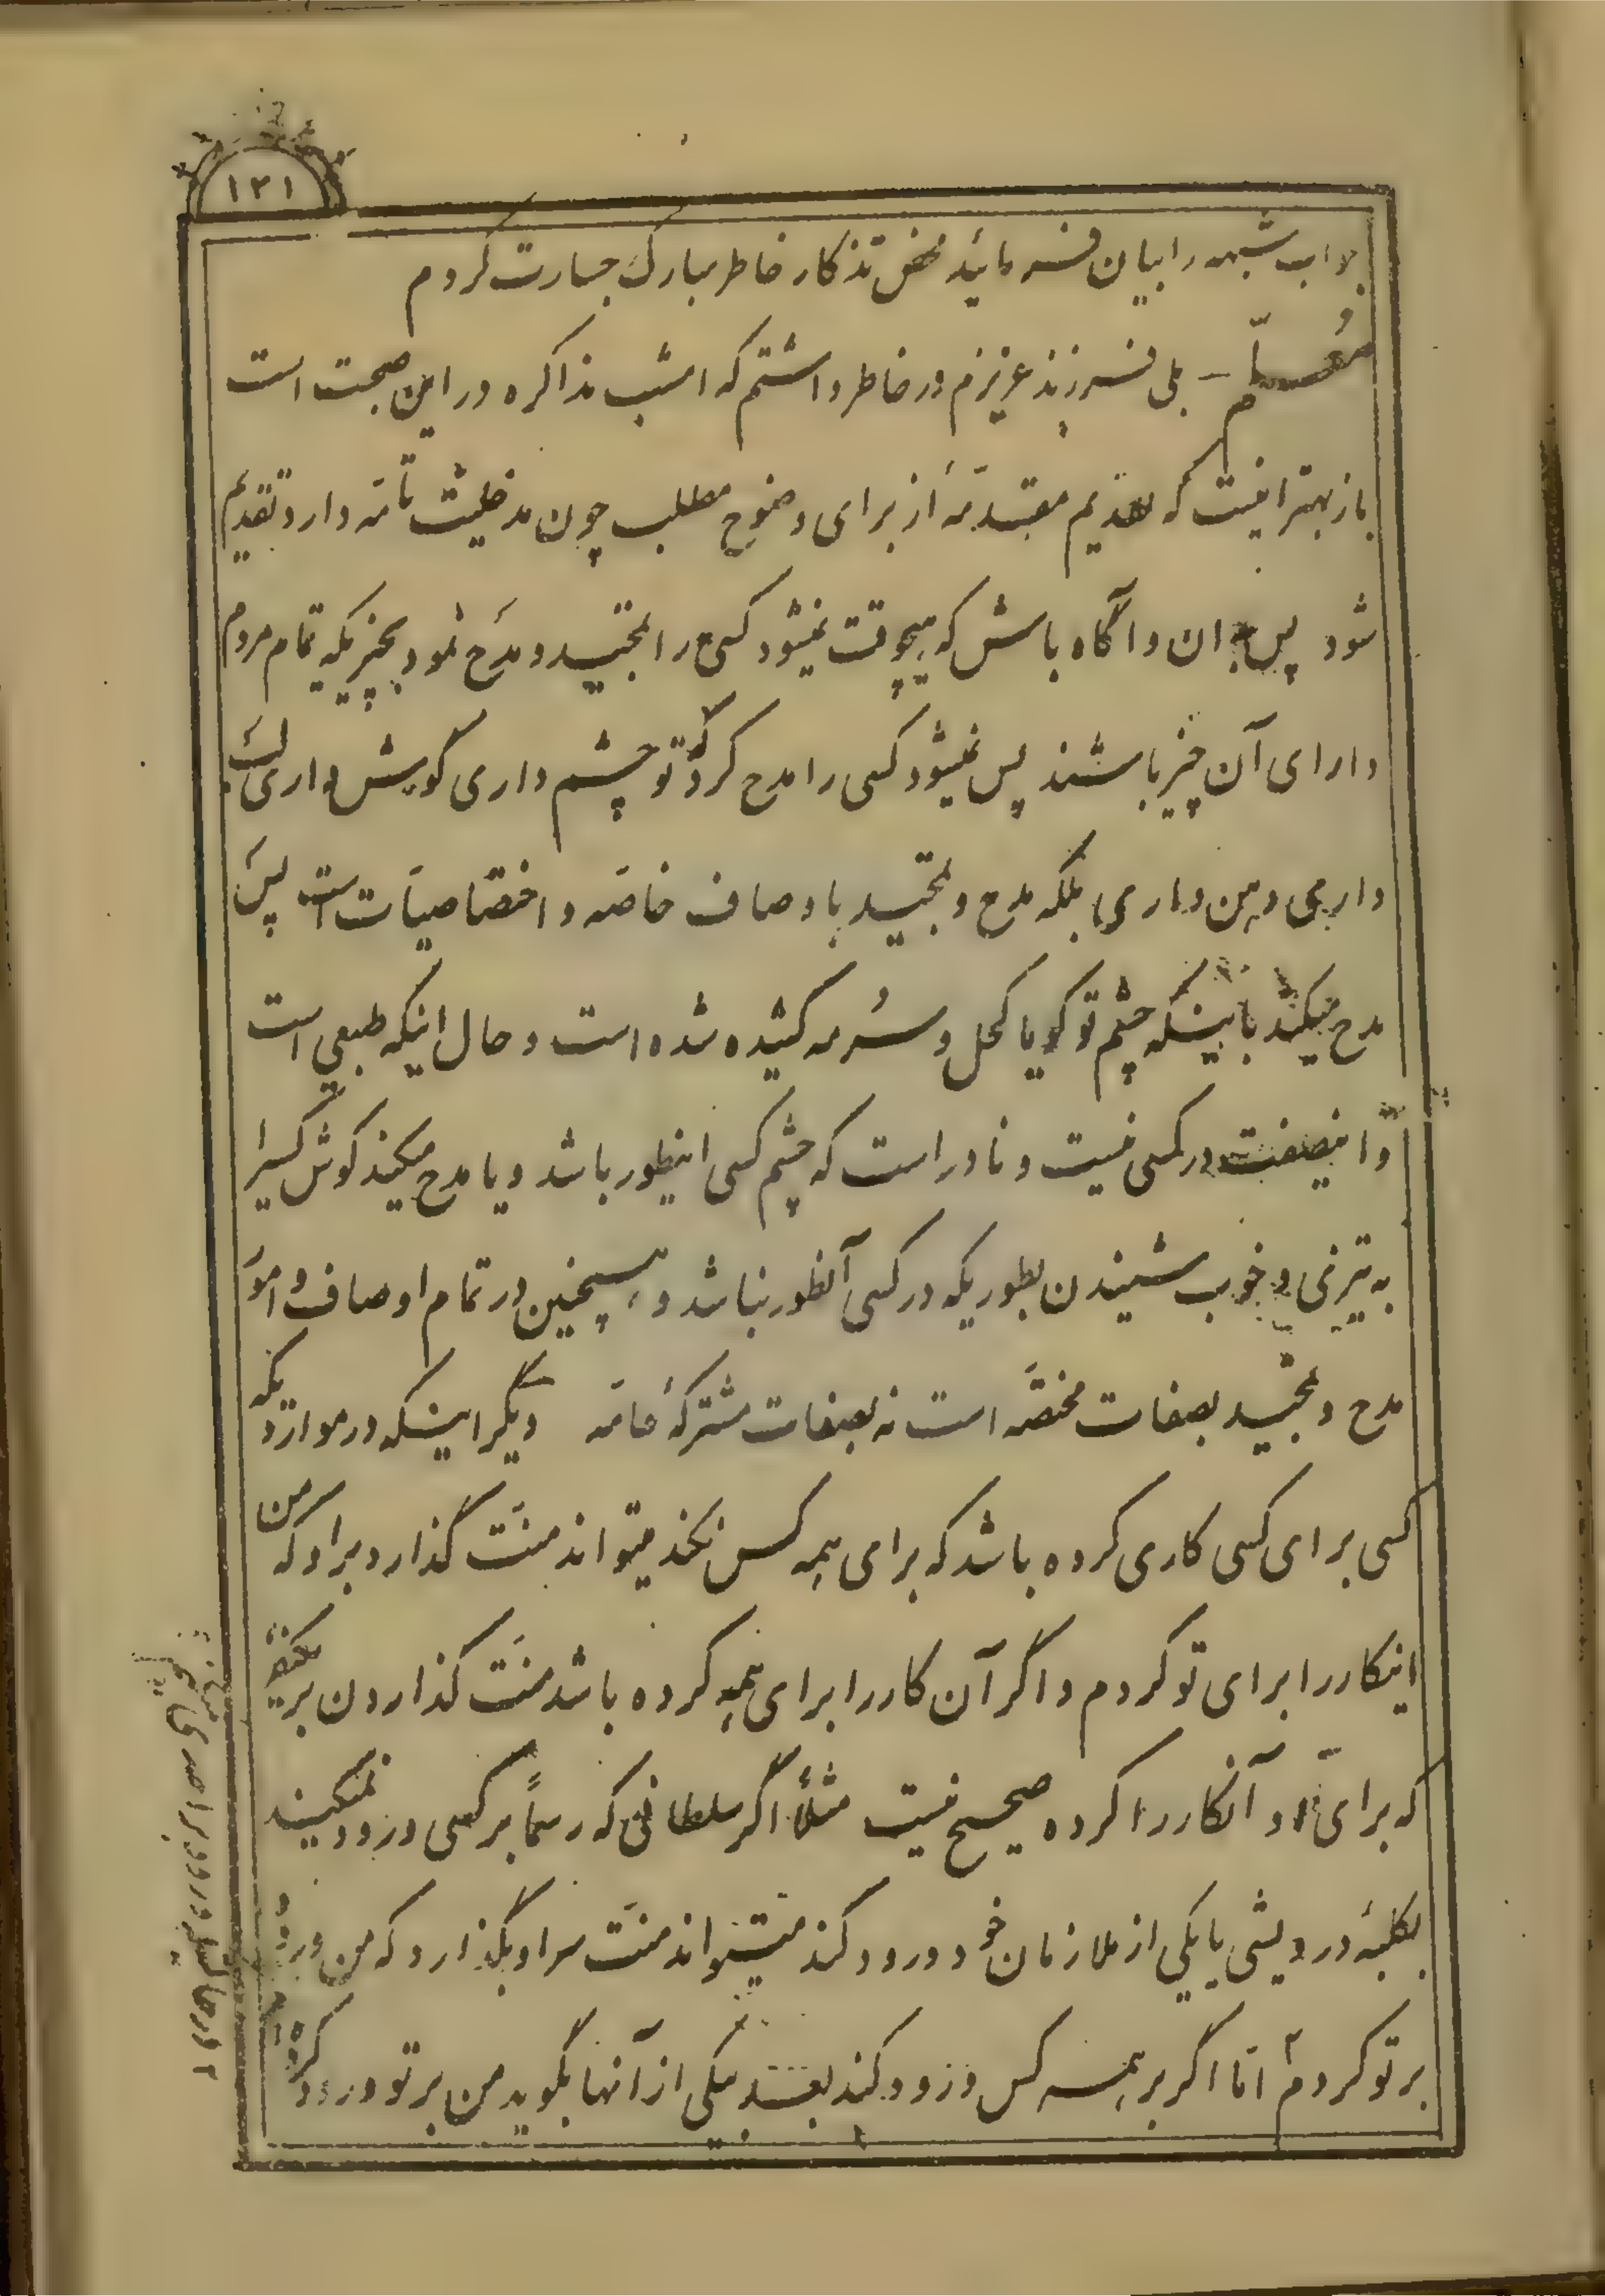 ١٢١
جواب شبهه را بیان فرمائید محض تذکار خاطر مبارک جسارت کردم
مُعلّم – بلی فرزند عزیزم در خاطر داشتم که امشب مذاکره در این صحبت است
باز بهتر اینست که تقدیم مقدّمهٔ از برای وضوح مطلب چون مدخلیت تامّه دارد تقدیم
شود پس بدان و آگاه باش که هیچوقت نمیشود کسی را تمجید و مدح نمود بچیزیکه تمام مردم
دارای آن چیز باشند پس نمیشود کسی را مدح کرد که تو چشم داری گوش داری لب
داری دهن داری بلکه مدح و تمجید باوصاف خاصّه و اختصاصیّات است پس
مدح میکند باینکه چشم تو گویا کحل و سُرمه کشیده شده است و حال اینکه طبیعی است
و اینصفت در کسی نیست و نادر است که چشم کسی اینطور باشد و یا مدح میکند گوش کسیرا
به تیزی و خوب شنیدن بطوریکه در کسی آنطور نباشد و همچنین در تمام اوصاف و امور
مدح و تمجید بصفات مختصّه است نه بصفات مشترکهٔ عامّه دیگر اینکه در مواردیکه
کسی برای کسی کاری کرده باشد که برای همه کس نکند میتواند منّت گذارد بر او که من
اینکار را برای تو کردم و اگر آن کار را برای همه کرده باشد منّت گذاردن بر یکنفر
که برای او آنکار را کرده صحیح نیست مثلاً اگر سلطانی که رسماً بر کسی ورود نمیکند
بکلبهٔ درویشی یا یکی از ملازمان خود ورود کند میتواند منّت بر او بگذارد که من ورود
بر تو کردم امّا اگر بر همه کس ورود کند بعد بیکی از آنها بگوید من بر تو ورود کرده